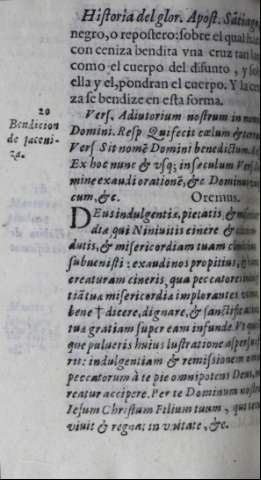 Historia del glor. Apost. Sātiago
negro, o repostero: sobre el qual
con ceniza bendita vna cruz tan
como el cuerpo del difunto, y
ella y el, pondran el cuerpo. Y la
za se bendize en esta forma.
20
Bendicion
de la ceni-
za.
Vers. Adiutorium nostrum in
Domini. Resp. Qui fecit cœlum & 
Vers Sit nomē Domini benedictum.
Ex hoc nunc & vsq; in sæculum Ver
mine exaudi orationē, &c Dominus
cum, &c. Oremus.
DEus indulgentiæ, pietatis, &
diæ qui Niniuitis cinere &
dutis, & misericordiam tuam
subuenisti: exaudi nos propitius, &
creaturam cineris, qua peccatores
tiā tua misericordia implorantes
bene † dicere, dignare, & sanctific
tua gratiam super eam infunde. Vt
que pulueris huius lustratione asper
rit: indulgentiam & remissionem
peccatorum à te pie omnipotens Deus,
reatur accipere. Per te Dominum
Iesum Christum Filium tuum, qui
viuit & regnat in vnitate, &c.